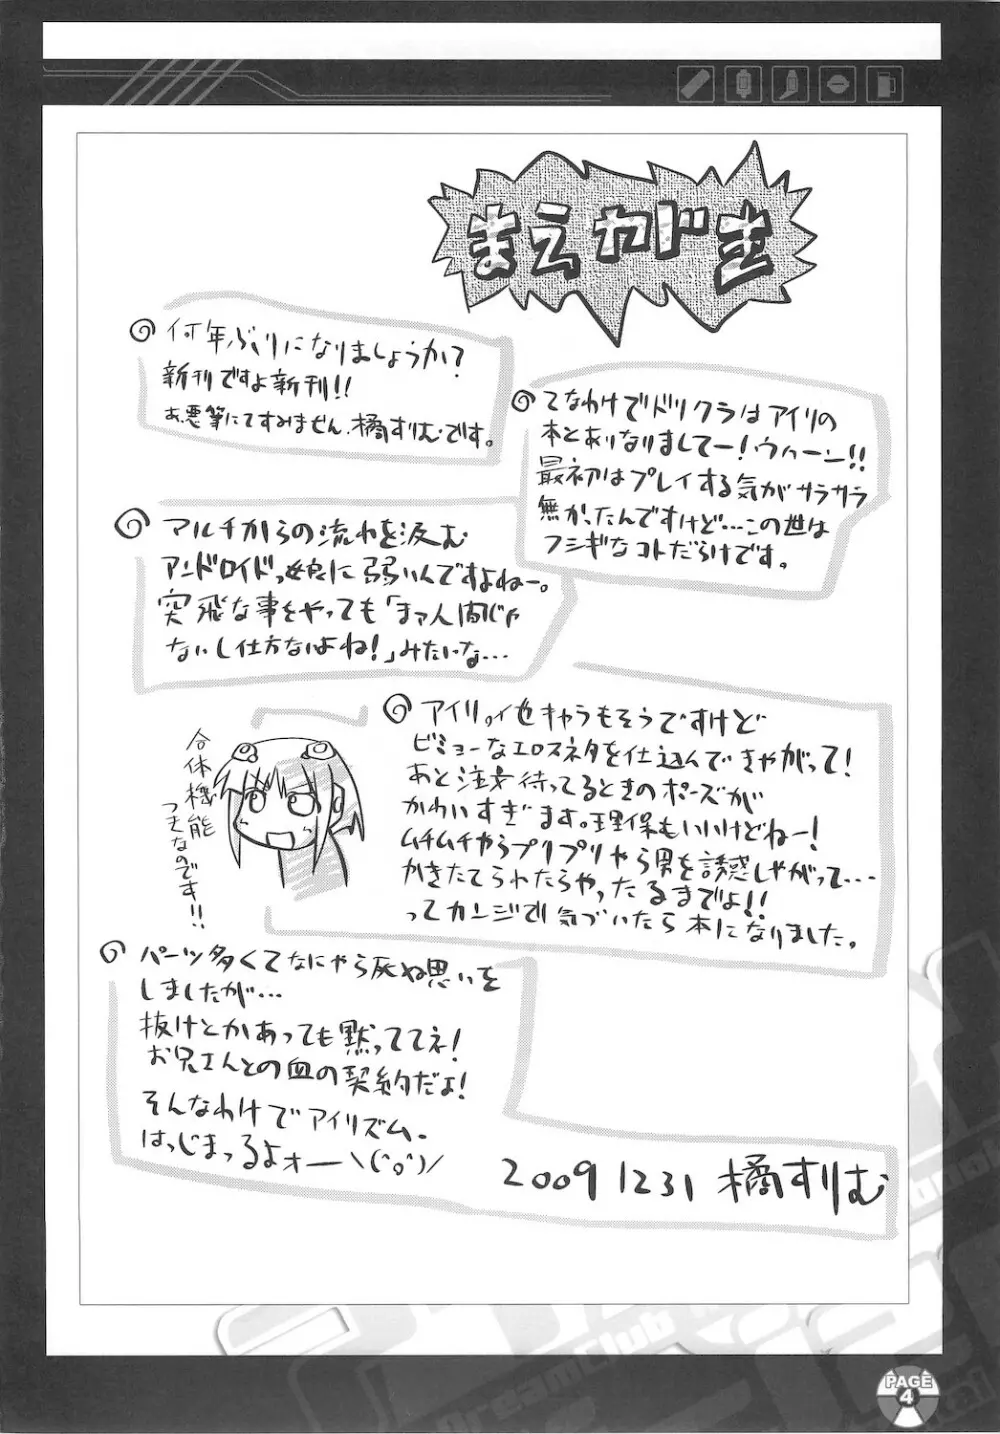 まえがき
何年ぶりになりましょうか?
新刊ですよ新刊!!
あ、悪筆にてすみません、橘すりむです。
てなわけでドリクラはアイリの
本とあいなりましてー!ウゥーン!!
最初はプレイする気がサラサラ
無かったんですけど…この世は
フシギなコトだらけです。
マルチからの流れを汲む
アンドロイドっ娘に弱いんですよねー。
突飛な事をやっても「まァ人間じゃ
ないし仕方ないよね!」みたいな…
アイリの他キャラもそうですけど
ビミョーなエロスネタを仕込んできやがって!
あと注文待ってるときのポーズが
かわいすぎます。理保もいいけどねー!
ムチムチやらプリプリやら男を誘惑しやがって…
かきたてられたらやったるまでよ!!
ってカンジで気づいたら本になりました。
合体機能
つきなのです!!
パーツ多くてなにやら死ぬ思いを
しましたが…
抜けとかあっても黙っててネ!
お兄さんとの血の契約だよ!
そんなわけでアイリズム、
はっじまっるよォー\(^o^)/
2009 1231 橘すりむ
PAGE
4